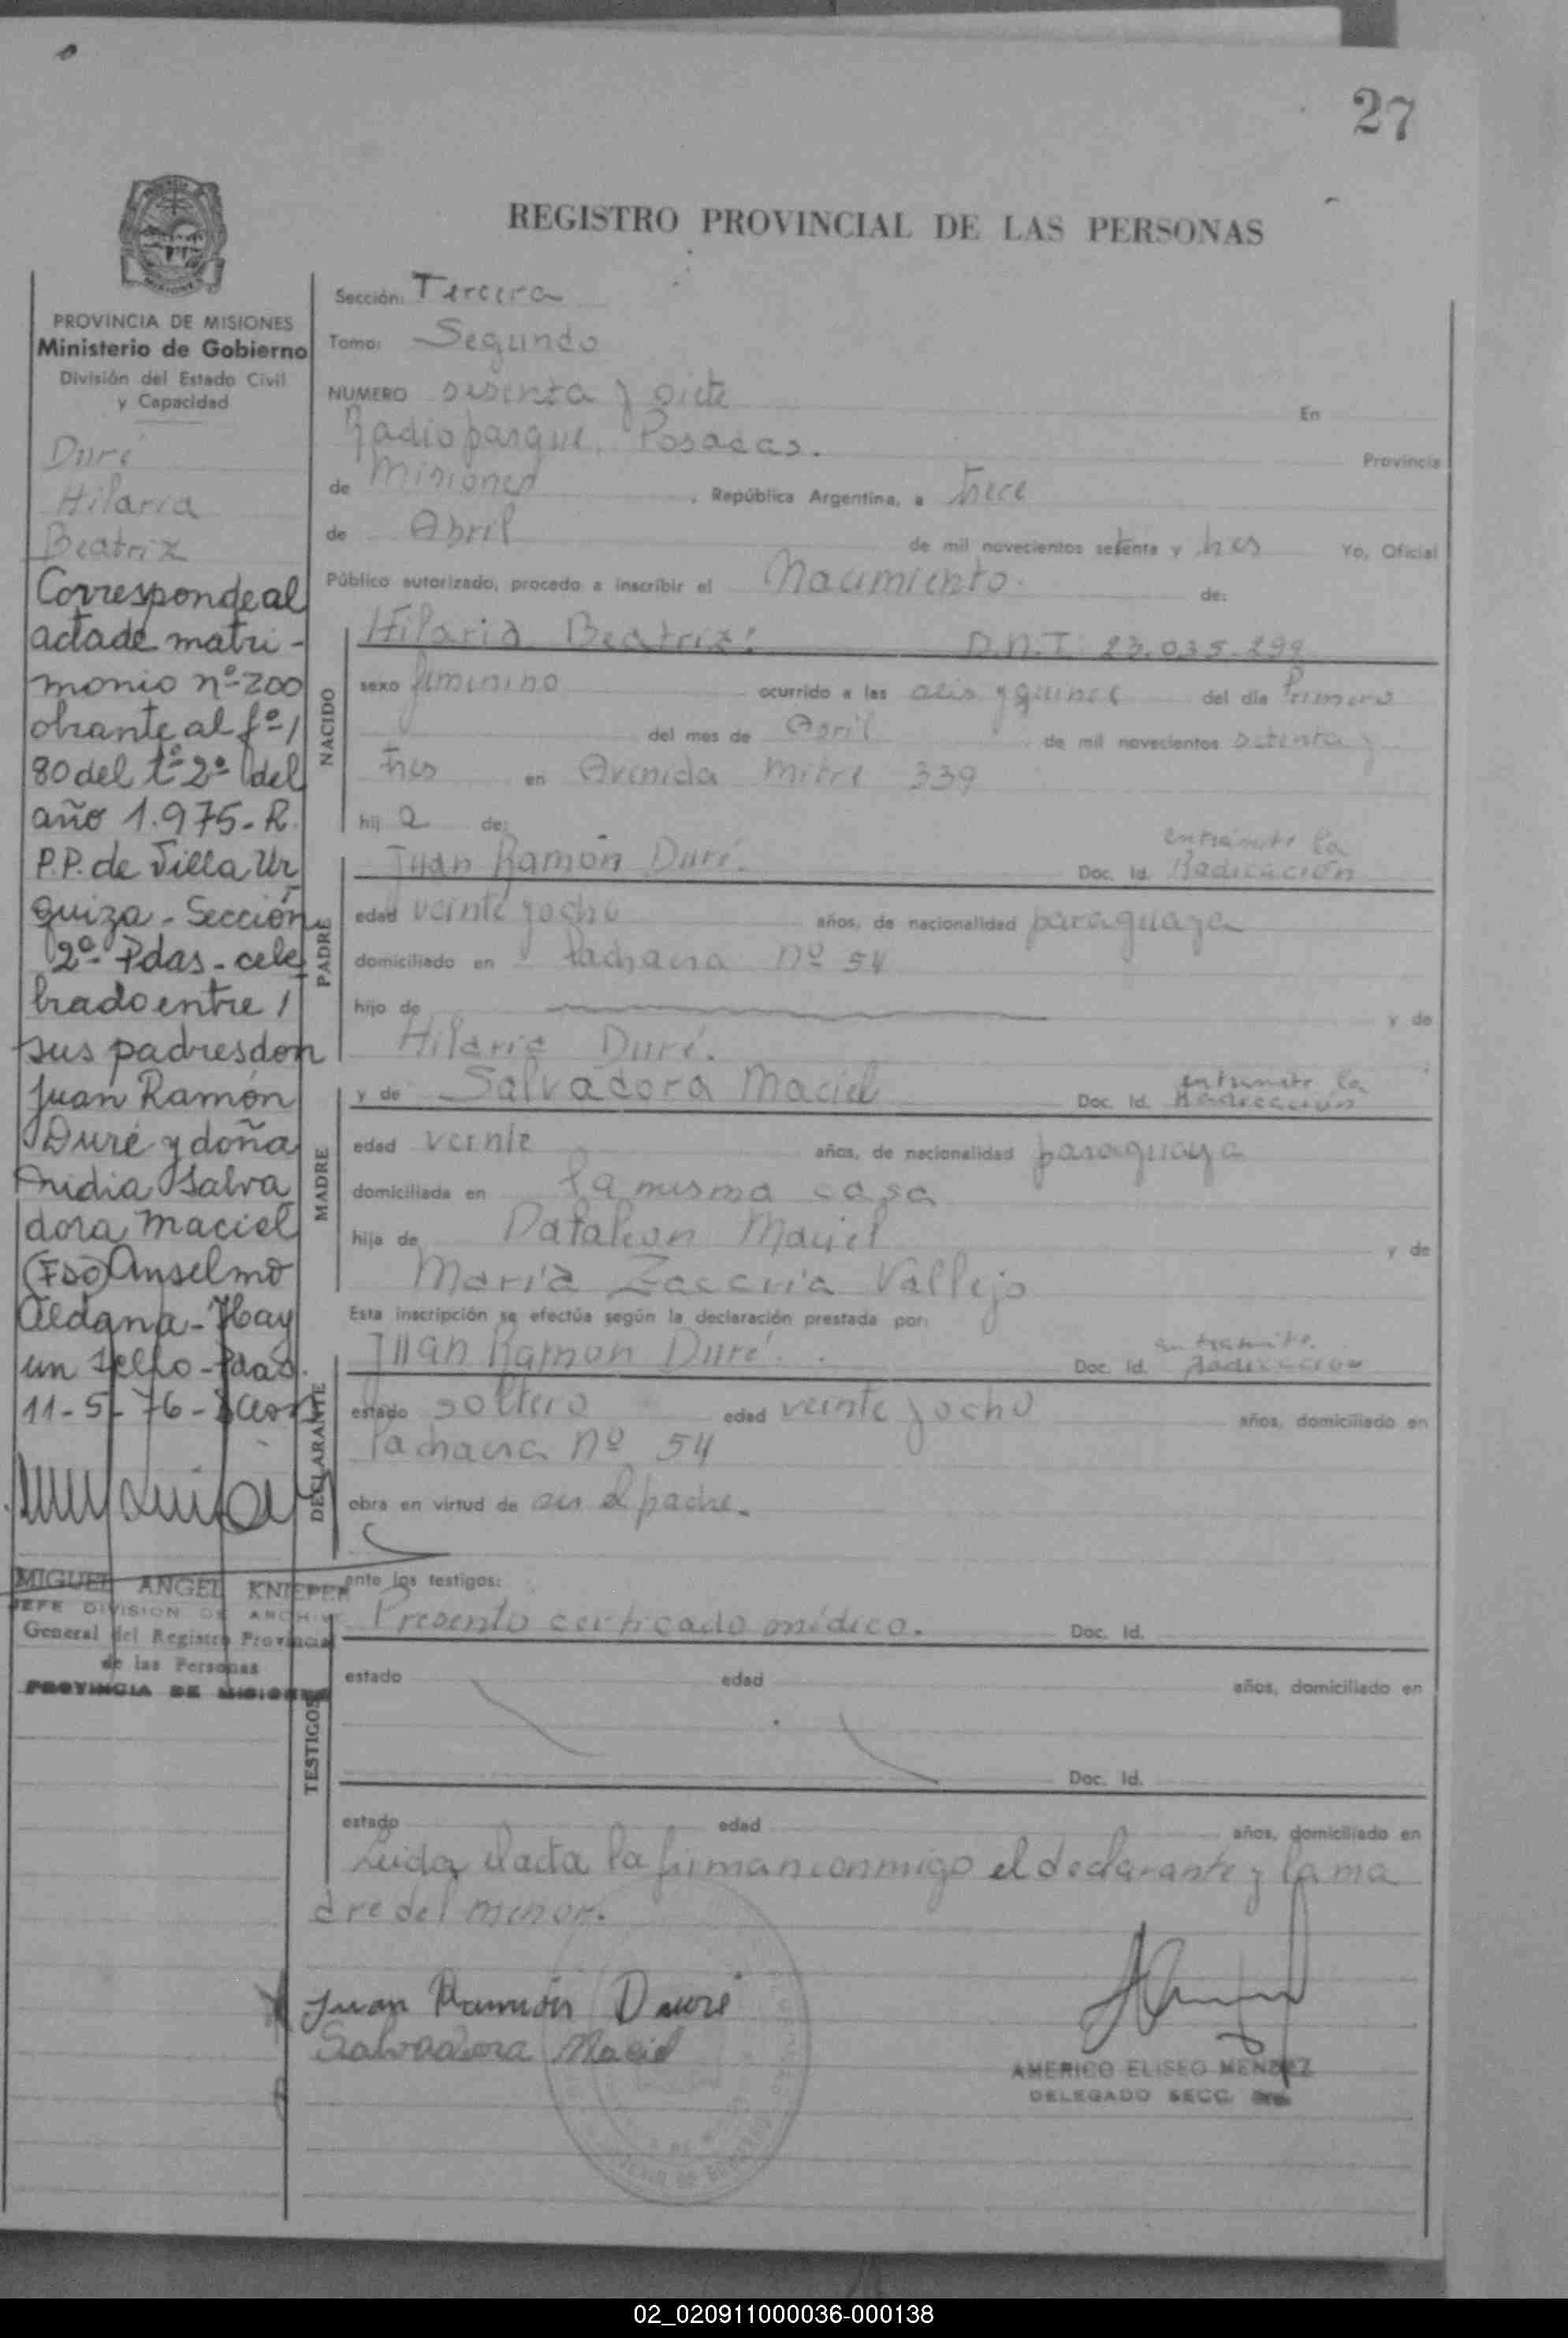 27
REGISTRO PROVINCIAL DE LAS PERSONAS
PROVINCIA DE MISIONES
Ministerio de Gobierno
División del Estado Civil
y Capacidad
Duré
Hilaria
Beatriz
Corresponde al
acta de matri-
monio nº 200
obrante al fº /
80 del tº 2º del
año 1.975- R.
P.P. de Villa Ur
quiza - Sección
2º Pdas - cele
brado entre /
sus padres don
Juan Ramón
Duré y doña
Anidia Salva
dora Maciel
(Fdo) Anselmo
Aldana - Hay
un sello - Pdas.
11-5-76-
MIGUEL ANGEL KNIEPER
JEFE DIVISION DE ARCHIVO
General del Registro Provincial
de las Personas
PROVINCIA DE MISIONES
Sección: Tercera
Tomo: Segundo
NUMERO sesenta y siete En
Radioparque, Posadas. Provincia
de Misiones, República Argentina, a trece
de Abril de mil novecientos setenta y tres Yo, Oficial
Público autorizado, procedo a inscribir el Nacimiento. de:
NACIDO
Hilaria Beatriz: D.N.I 23.035.299
sexo femenino ocurrido a las seis y quince del día Primero
del mes de Abril de mil novecientos setenta y
tres en Avenida Mitre 339
hij a de:
PADRE
Juan Ramón Duré. Doc. Id. en tramite la Radicación
edad veinte y ocho años, de nacionalidad paraguaya
domiciliado en Nº 54
hijo de y de
Hilaria Duré.
MADRE
y de Salvadora Maciel Doc. Id. en tramite la Radicación
edad veinte años, de nacionalidad paraguaya
domiciliada en la misma casa
hija de Maciel y de
María Vallejo
Esta inscripción se efectúa según la declaración prestada por:
DECLARANTE
Juan Ramon Duré. Doc. Id. en tramite Radicación
estado soltero edad veinte y ocho años, domiciliado en
Nº 54
obra en virtud de ser el padre.
ante los testigos:
TESTIGOS
Presento certicado médico. Doc. Id.
estado edad años, domiciliado en
Doc. Id.
estado edad años, domiciliado en
Leida el acta la firman conmigo el declarante y la ma
dre del menor.
Juan Ramón Duré
Salvadora Maciel
AMERICO ELISEO MENDEZ
DELEGADO SECC.
02_020911000036-000138